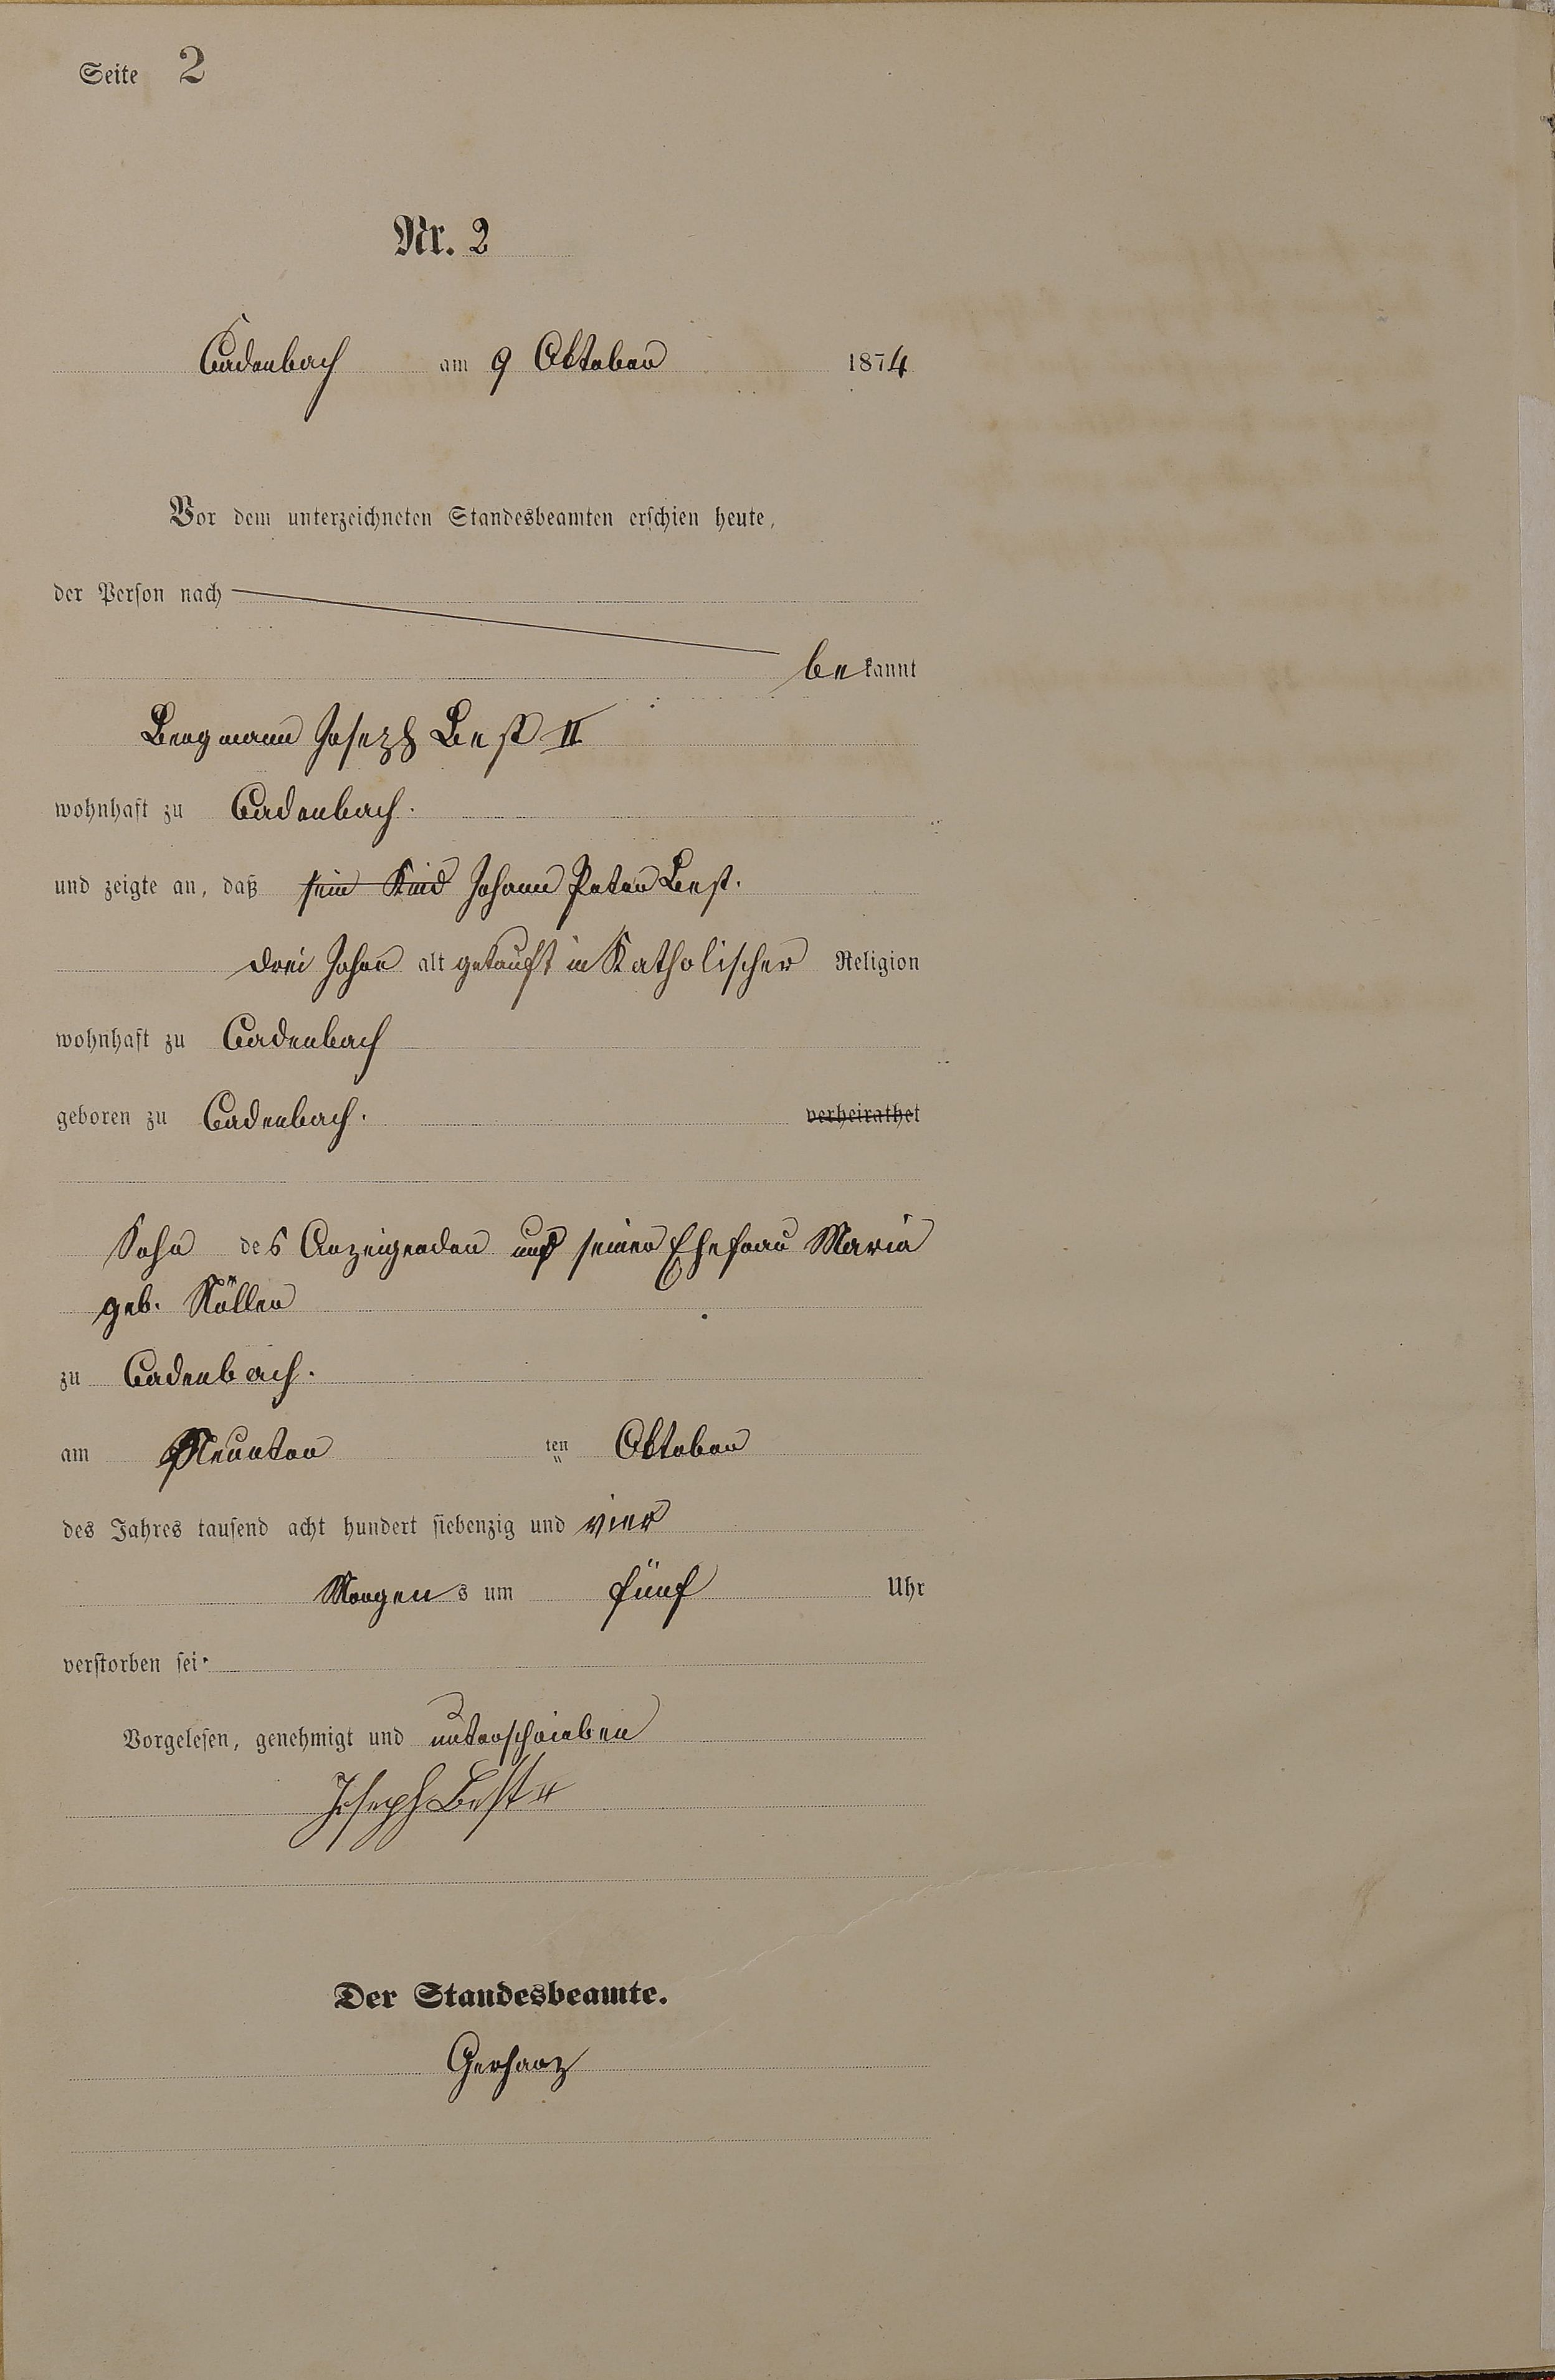 Seite 2
Nr. 2
Cadenbach am 9 Oktober 1874
Vor dem unterzeichneten Standesbeamten erschien heute,
der Person nach
bekannt
Bergmann Joseph Best II
wohnhaft zu Cadenbach.
und zeigte an, daß sein Kind Johann Peter Best.
drei Jahre alt getauft in Katholischer Religion
wohnhaft zu Cadenbach
geboren zu Cadenbach. verheirathet
Sohn des Anzeigenden und seiner Ehefrau Maria
geb. Nöller
zu Cadenbach.
am Neunten ten Oktober
des Jahres tausend acht hundert siebenzig und vier
Morgens um fünf Uhr
verstorben sei.
Vorgelesen, genehmigt und unterschrieben
Joseph Best II
Der Standesbeamte.
Gerharz